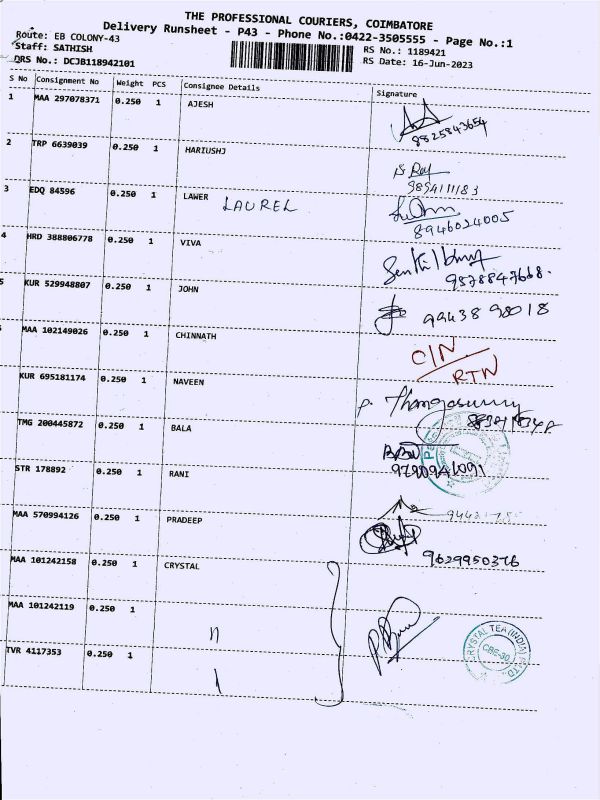 THE PROFESSIONAL COURIERS, COIMBATORE
Delivery Runsheet - P43 - Phone No.:0422-3505555 - Page No.:1
Route: EB COLONY-43
RS No.: 1189421
Staff: SATHISH
RS Date: 16-Jun-2023
DRS No.: DCJB118942101
S No Consignment No Weight PCS Consignee Details Signature
1 MAA 297078371 0.250 1 AJESH
8825843654
2 TRP 6639039 0.250 1 HARIUSHJ
9894111183
3 EDQ 84596 0.250 1 LAWER LAUREL
8946024005
4 HRD 388806778 0.250 1 VIVA
9578847668.
5 KUR 529948807 0.250 1 JOHN
94438 98018
MAA 102149026 0.250 1 CHINNATH
O/N
RTN
KUR 695181174 0.250 1 NAVEEN
TMG 200445872 0.250 1 BALA
9790941091
STR 178892 0.250 1 RANI
MAA 570994126 0.250 1 PRADEEP
9629950376
MAA 101242158 0.250 1 CRYSTAL
MAA 101242119 0.250 1
TVR 4117353 0.250 1
CRYSTAL TEA (INDIA) P LTD.
CBE-30